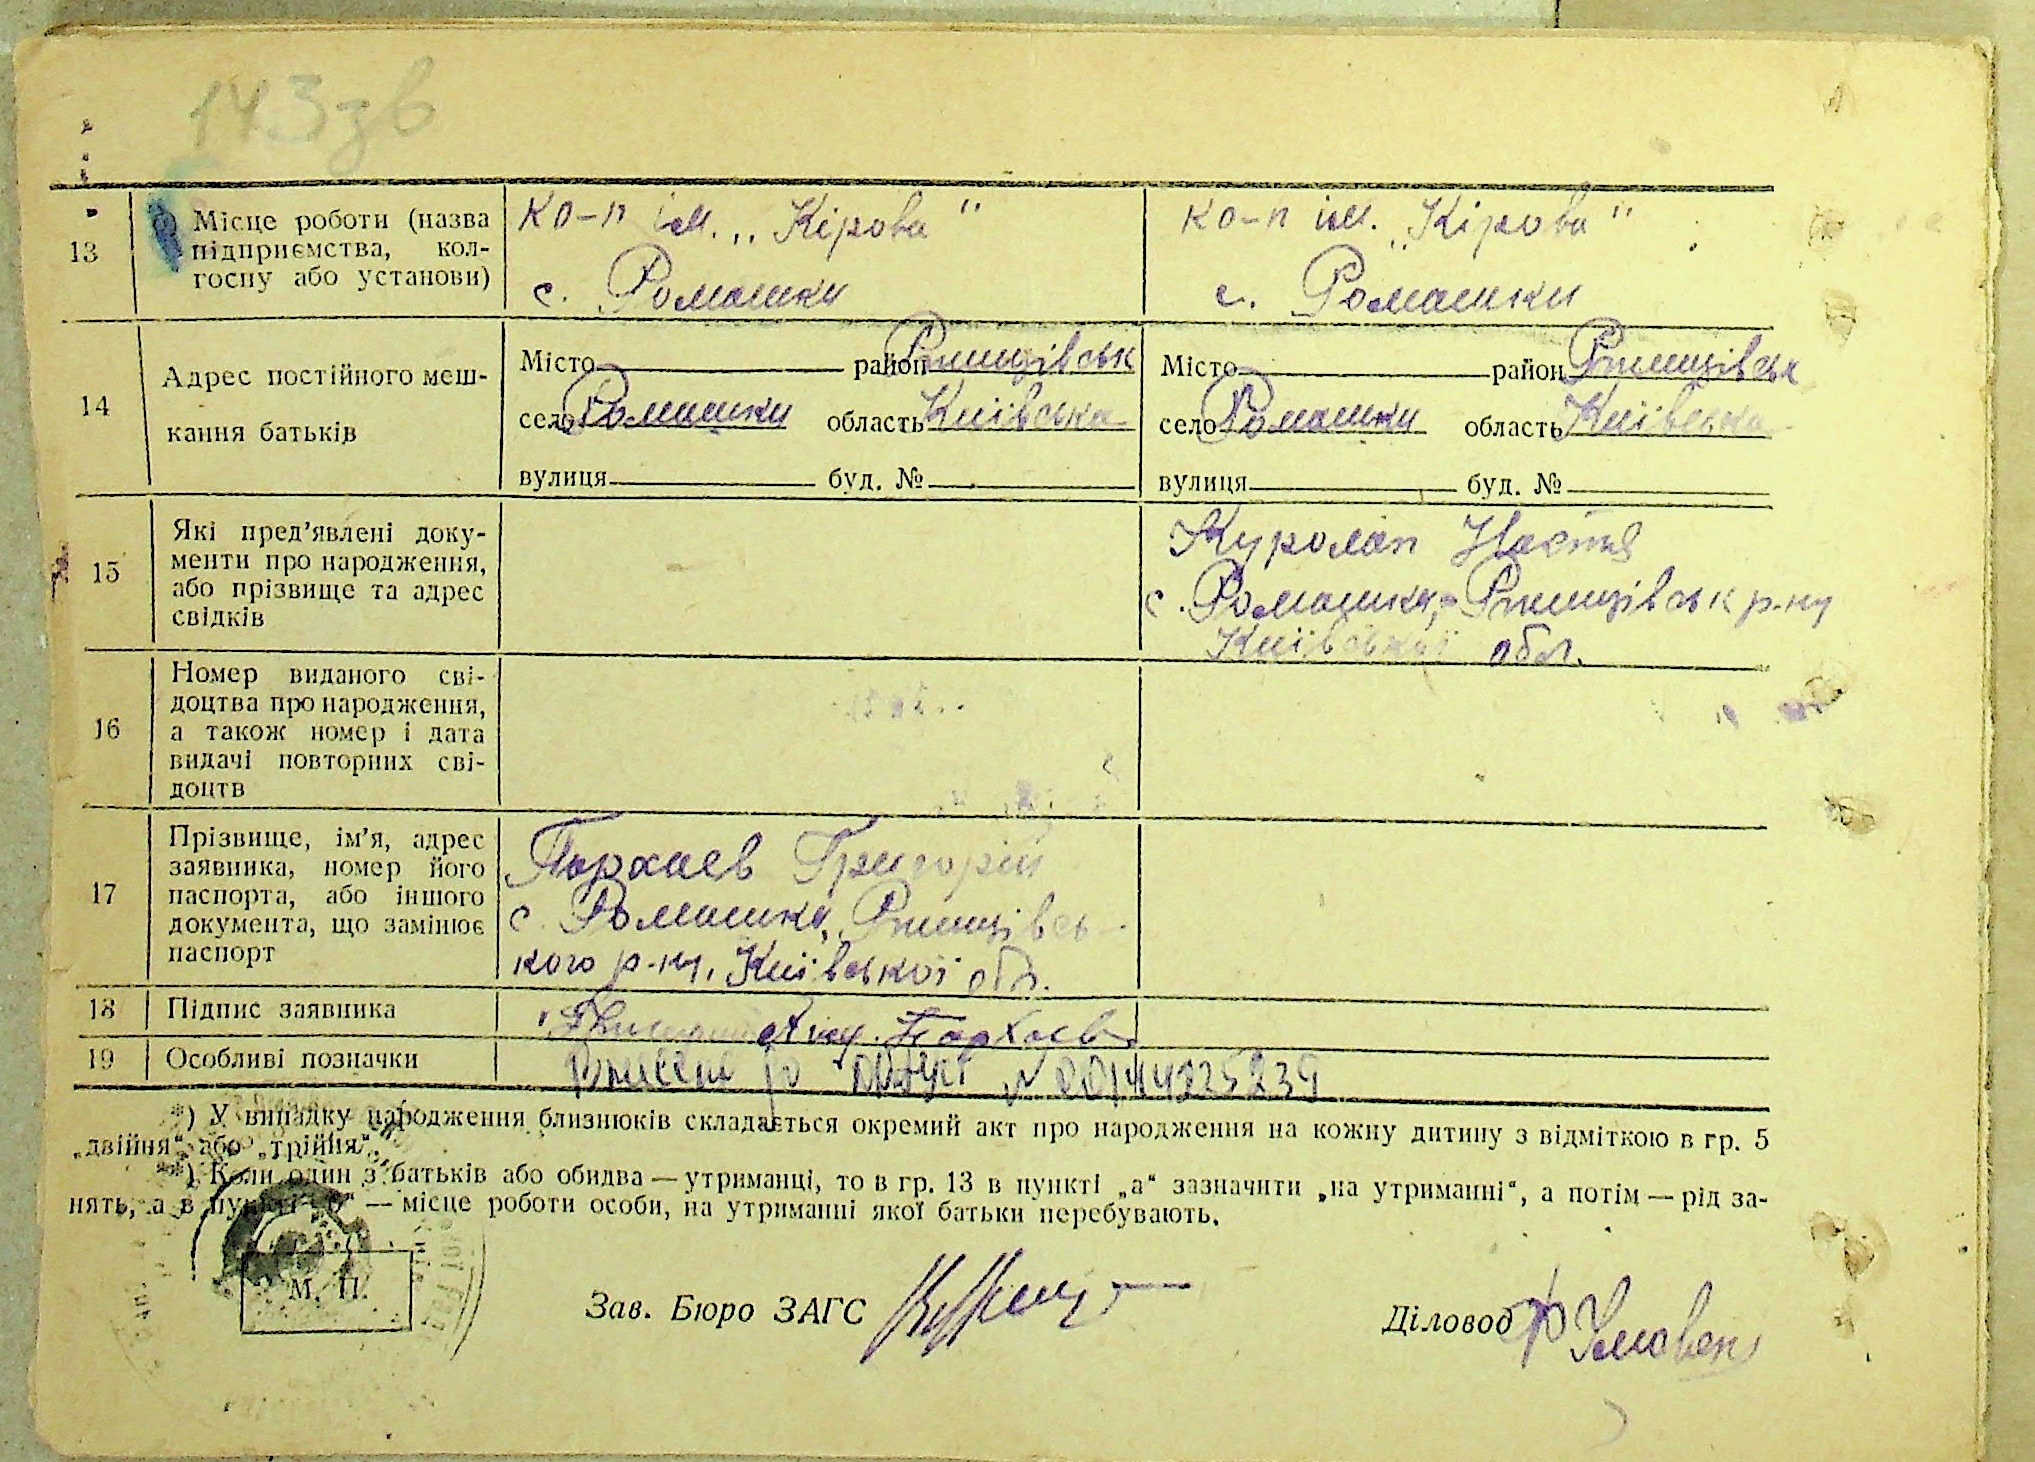 143зв
13
Місце роботи (назва
підприємства, кол-
госпу або установи)
к о-п ім. „Кірова"
с. Ромашки
к о-п ім. „Кірова"
с. Ромашки
14
Адрес постійного меш-
кання батьків
Місто район Ржищівськ
село Ромашки область Київська
вулиця буд. №
Місто район Ржищівськ
село Ромашки область Київська
вулиця буд. №
15
Які пред'явлені доку-
менти про народження,
або прізвище та адрес
свідків
Куролап Настя
с. Ромашки, Ржищівськ р-ну
Київської обл.
16
Номер виданого сві-
доцтва про народження,
а також номер і дата
видачі повторних сві-
доцтв
17
Прізвище, ім'я, адрес
заявника, номер його
паспорта, або іншого
документа, що замінює
паспорт
Пархаєв Григорій
с. Ромашки, Ржищівсь-
кого р-ну, Київської обл.
18
Підпис заявника
Пархаєв
19
Особливі позначки
*) У випадку народження близнюків складається окремий акт про народження на кожну дитину з відміткою в гр. 5
„двійня" або „трійня".
*) Коли один з батьків або обидва — утриманці, то в гр. 13 в пункті „а" зазначити „на утриманні", а потім — рід за-
нять, а в пункті „б" — місце роботи особи, на утриманні якої батьки перебувають.
М. П.
Зав. Бюро ЗАГС
Діловод